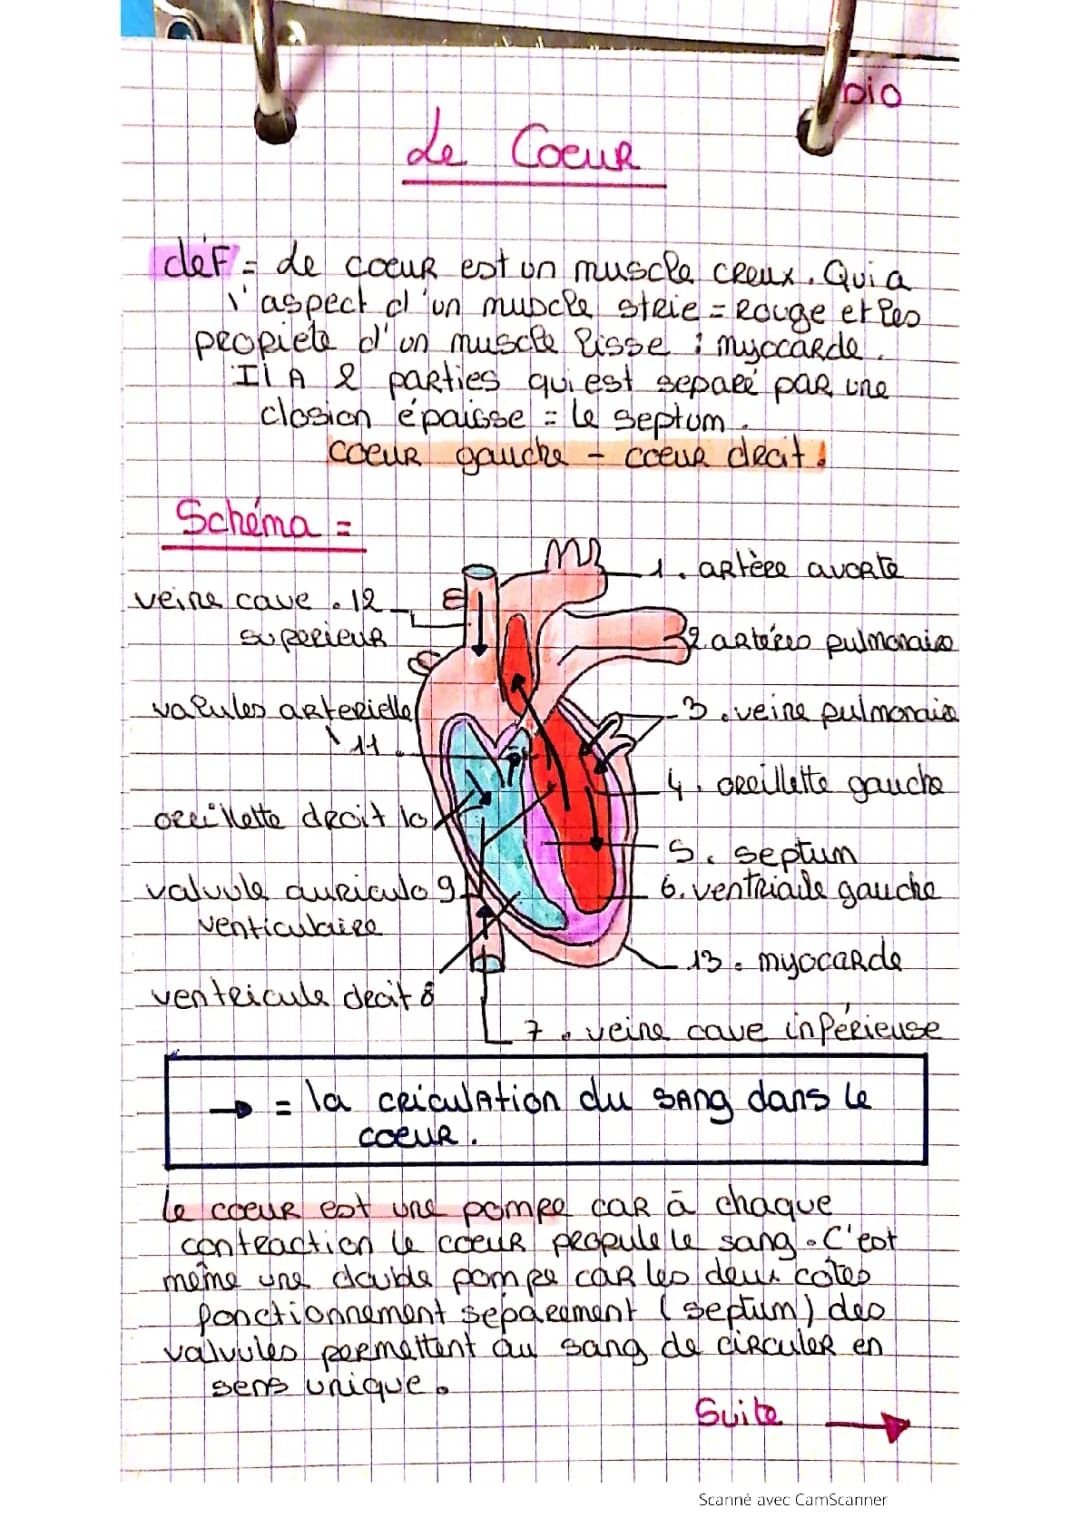 bio
Le Coeur
déf = Le coeur est un muscle creux. Qui a
l'aspect d'un muscle strie = Rouge et les
propiete d'un muscle lisse : myocarde.
Il A 2 parties qui est separé par une
closion épaisse = le septum.
coeur gauche - coeur droit.
Schéma =
1. artère avorte
veine cave . 12
superieur
2. artéres pulmonaire
valules arterielle
11.
3. veine pulmonaire
4. oreillette gauche
oreillette droit 10
5. septum
valvule auriculo 9
venticulaire
6. ventriale gauche
13. myocarde
ventricule droit 8
7. veine cave inférieuse
→ = la criculation du sang dans le
coeur.
Le coeur est une pompe car à chaque
contraction le coeur propule le sang. C'est
même une double pompe car les deux cotés
fonctionnement séparement (septum) des
valvules permettent au sang de circuler en
sens unique.
Suite →
Scanné avec CamScanner